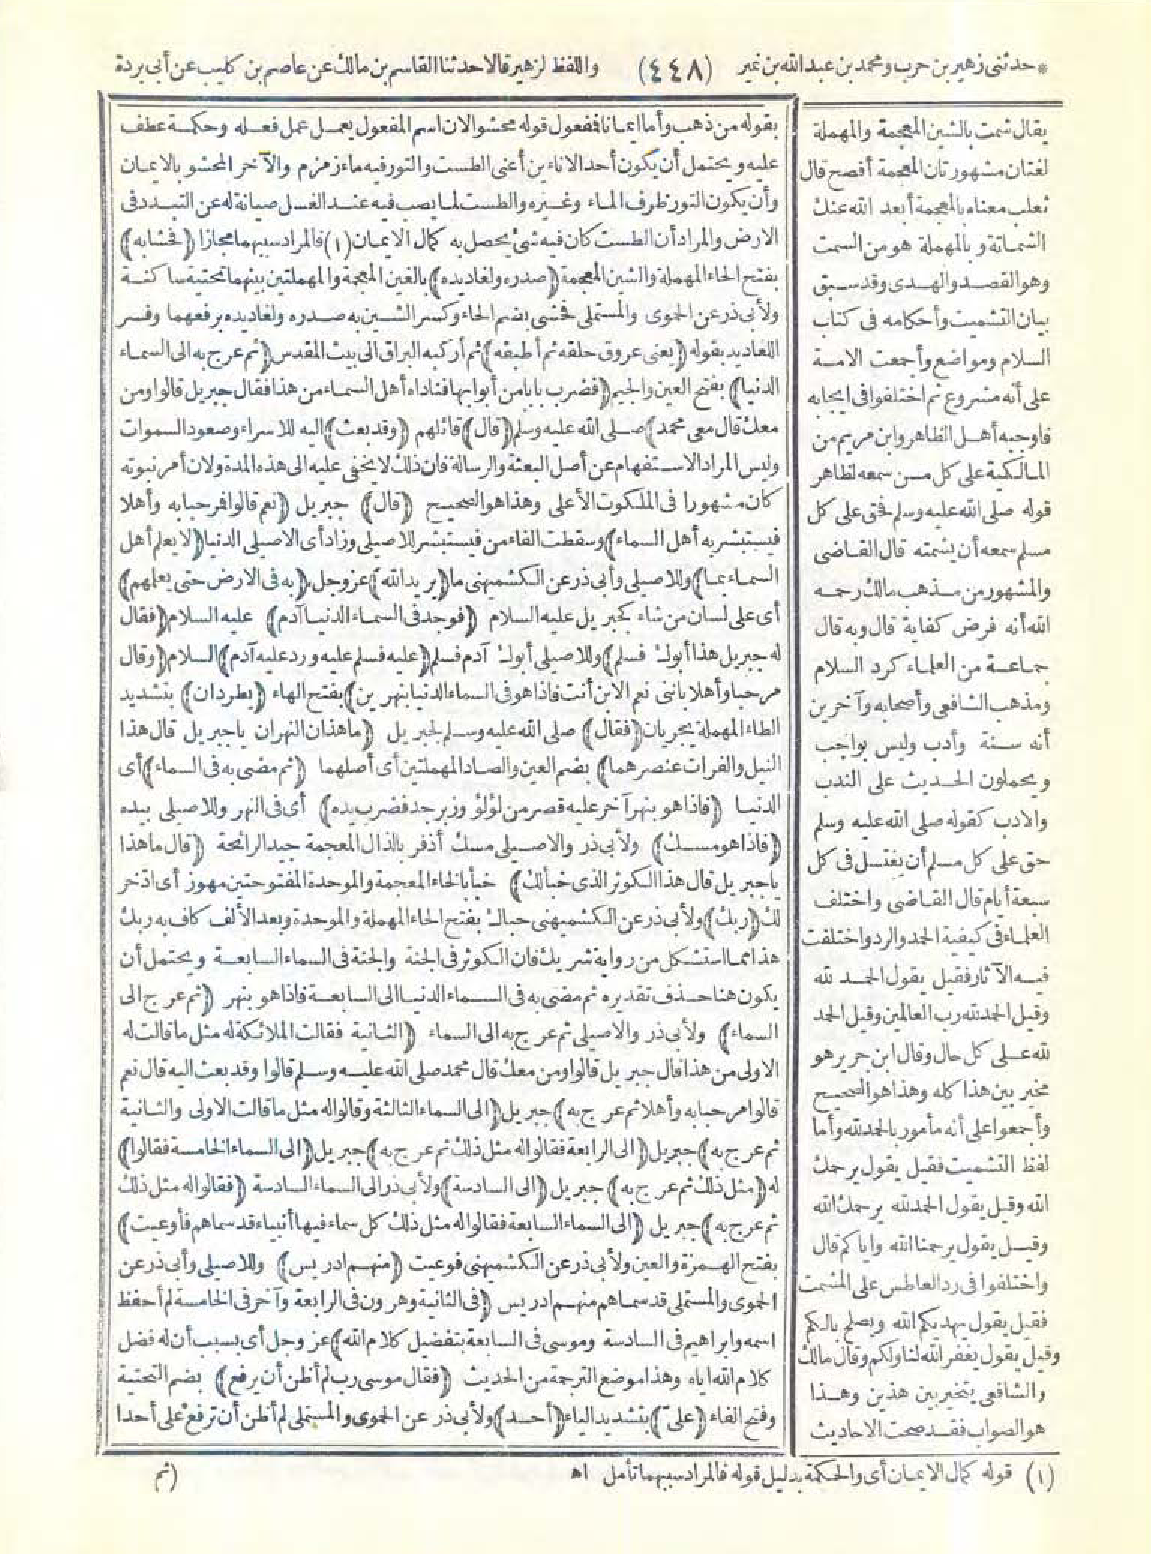 * حدثنى زهير بن حرب ومحمد بن عبد الله بن نمير (٤٤٨) واللفظ لزهير قالا حدثنا القاسم بن مالك عن عاصم بن كليب عن أبى بردة
يقال شمت بالشين المعجمة والمهملة
لغتان مشهورتان المعجمة أفصح قال
ثعلب معناه بالمعجمة أبعد الله عنك
الشماتة وبالمهملة هو من السمت
وهو القصد والهدى وقد سبق
بيان التشميت وأحكامه فى كتاب
السلام ومواضع وأجمعت الامة
على أنه مشروع ثم اختلفوا فى ايجابه
فأوجبه أهل الظاهر وابن مريم من
المالكية على كل من سمعه لظاهر
قوله صلى الله عليه وسلم فحق على كل
مسلم سمعه أن يشمته قال القاضى
والمشهور من مذهب مالك رحمه
الله أنه فرض كفاية قال وبه قال
جماعة من العلماء كرد السلام
ومذهب الشافعى وأصحابه وآخرين
أنه سنة وأدب وليس بواجب
ويحملون الحديث على الندب
والادب كقوله صلى الله عليه وسلم
حق على كل مسلم أن يغتسل فى كل
سبعة أيام قال القاضى واختلف
العلماء فى كيفية الحمد والرد واختلفت
فيه الآثار فقيل يقول الحمد لله
وقيل الحمد لله رب العالمين وقيل الحمد
لله على كل حال وقال ابن جرير هو
مخير بين هذا كله وهذا هو الصحيح
وأجمعوا على أنه مأمور بالحمد لله وأما
لفظ التشميت فقيل يقول يرحمك
الله وقيل يقول الحمد لله يرحمك الله
وقيل يقول يرحمنا الله واياكم قال
واختلفوا فى رد العاطس على المشمت
فقيل يقول يهديكم الله ويصلح بالكم
وقيل يقول يغفر الله لنا ولكم وقال مالك
والشافعى يتخير بين هذين وهذا
هو الصواب فقد صحت الاحاديث
بقوله من ذهب وأما ايمانا فمفعول قوله محشوا لان اسم المفعول يعمل عمل فعله وحكمة عطف
عليه ويحتمل أن يكون أحد الاناءين أعنى الطست والتور فيه ماء زمزم والآخر المحشو بالايمان
وأن يكون التور ظرف الماء وغيره والطست لما يصب فيه عند الغسل صيانة له عن التبدد فى
الارض والمراد أن الطست كان فيه شئ يحصل به كمال الايمان (١) فالمراد سببهما مجازا (فحشا به)
بفتح الحاء المهملة والشين المعجمة (صدره ولغاديده) بالغين المعجمة والمهملتين بينهما تحتية ساكنة
ولأبى ذر عن الحموى والمستملى فحشى بضم الحاء وكسر الشين به صدره ولغاديده برفعهما وفسر
اللغاديد بقوله (يعنى عروق حلقه ثم أطبقه) ثم أركبه البراق الى بيت المقدس (ثم عرج به الى السماء
الدنيا) بفتح العين والجيم (فضرب بابا من أبوابها فناداه أهل السماء من هذا فقال جبريل قالوا ومن
معك قال معى محمد) صلى الله عليه وسلم (قال) قائلهم (وقد بعث) اليه للاسراء وصعود السموات
وليس المراد الاستفهام عن أصل البعثة والرسالة فان ذلك لا يخفى عليه الى هذه المدة ولان أمر نبوته
كان مشهورا فى الملكوت الأعلى وهذا هو الصحيح (قال) جبريل (نعم قالوا فمرحبا به وأهلا
فيستبشر به أهل السماء) وسقطت الفاء من فيستبشر للاصيلى وزاد أى الاصيلى الدنيا (لا يعلم أهل
السماء بما) وللاصيلى وأبى ذر عن الكشميهنى ما (يريد الله) عز وجل (به فى الارض حتى يعلمهم)
أى على لسان من شاء كجبريل عليه السلام (فوجد فى السماء الدنيا آدم) عليه السلام (فقال
له جبريل هذا أبوك فسلم) وللاصيلى أبوك آدم فسلم (عليه فسلم عليه ورد عليه آدم) السلام (وقال
مرحبا وأهلا بابنى نعم الابن أنت فاذا هو فى السماء الدنيا بنهرين) بفتح الهاء (يطردان) بتشديد
الطاء المهملة يجريان (فقال) صلى الله عليه وسلم لجبريل (ما هذان النهران يا جبريل قال هذا
النيل والفرات عنصرهما) بضم العين والصاد المهملتين أى أصلهما (ثم مضى به فى السماء) أى
الدنيا (فاذا هو بنهر آخر عليه قصر من لؤلؤ وزبرجد فضرب يده) أى فى النهر وللاصيلى بيده
(فاذا هو مسك) ولأبى ذر والاصيلى مسك أذفر بالذال المعجمة جيد الرائحة (قال ما هذا
يا جبريل قال هذا الكوثر الذى خبألك) خبأ بالخاء المعجمة والموحدة المفتوحتين مهموز أى ادّخر
لك (ربك) ولأبى ذر عن الكشميهنى حباك بفتح الحاء المهملة والموحدة وبعد الألف كاف به ربك
هذا مما استشكل من رواية شريك فان الكوثر فى الجنة والجنة فى السماء السابعة ويحتمل أن
يكون هنا حذف تقديره ثم مضى به فى السماء الدنيا الى السابعة فاذا هو بنهر (ثم عرج الى
السماء) ولأبى ذر والاصيلى ثم عرج به الى السماء (الثانية فقالت الملائكة له مثل ما قالت له
الاولى من هذا قال جبريل قالوا ومن معك قال محمد صلى الله عليه وسلم قالوا وقد بعث اليه قال نعم
قالوا مرحبا به وأهلا ثم عرج به) جبريل (الى السماء الثالثة وقالوا له مثل ما قالت الاولى والثانية
ثم عرج به) جبريل (الى الرابعة فقالوا له مثل ذلك ثم عرج به) جبريل (الى السماء الخامسة فقالوا)
له (مثل ذلك ثم عرج به) جبريل (الى السادسة) ولأبى ذر الى السماء السادسة (فقالوا له مثل ذلك
ثم عرج به) جبريل (الى السماء السابعة فقالوا له مثل ذلك كل سماء فيها أنبياء قد سماهم فأوعيت)
بفتح الهمزة والعين ولأبى ذر عن الكشميهنى فوعيت (منهم ادريس) وللاصيلى وأبى ذر عن
الحموى والمستملى قد سماهم منهم ادريس (فى الثانية وهرون فى الرابعة وآخر فى الخامسة لم أحفظ
اسمه وابراهيم فى السادسة وموسى فى السابعة بتفضيل كلام الله) عز وجل أى بسبب أن له فضل
كلام الله اياه وهذا موضع الترجمة من الحديث (فقال موسى رب لم أظن أن يرفع) بضم التحتية
وفتح الفاء (علىّ) بتشديد الياء (أحد) ولأبى ذر عن الحموى والمستملى لم أظن أن ترفع على أحدا
(١) قوله كمال الايمان أى والحكمة بدليل قوله فالمراد سببهما تأمل اه
(ثم)